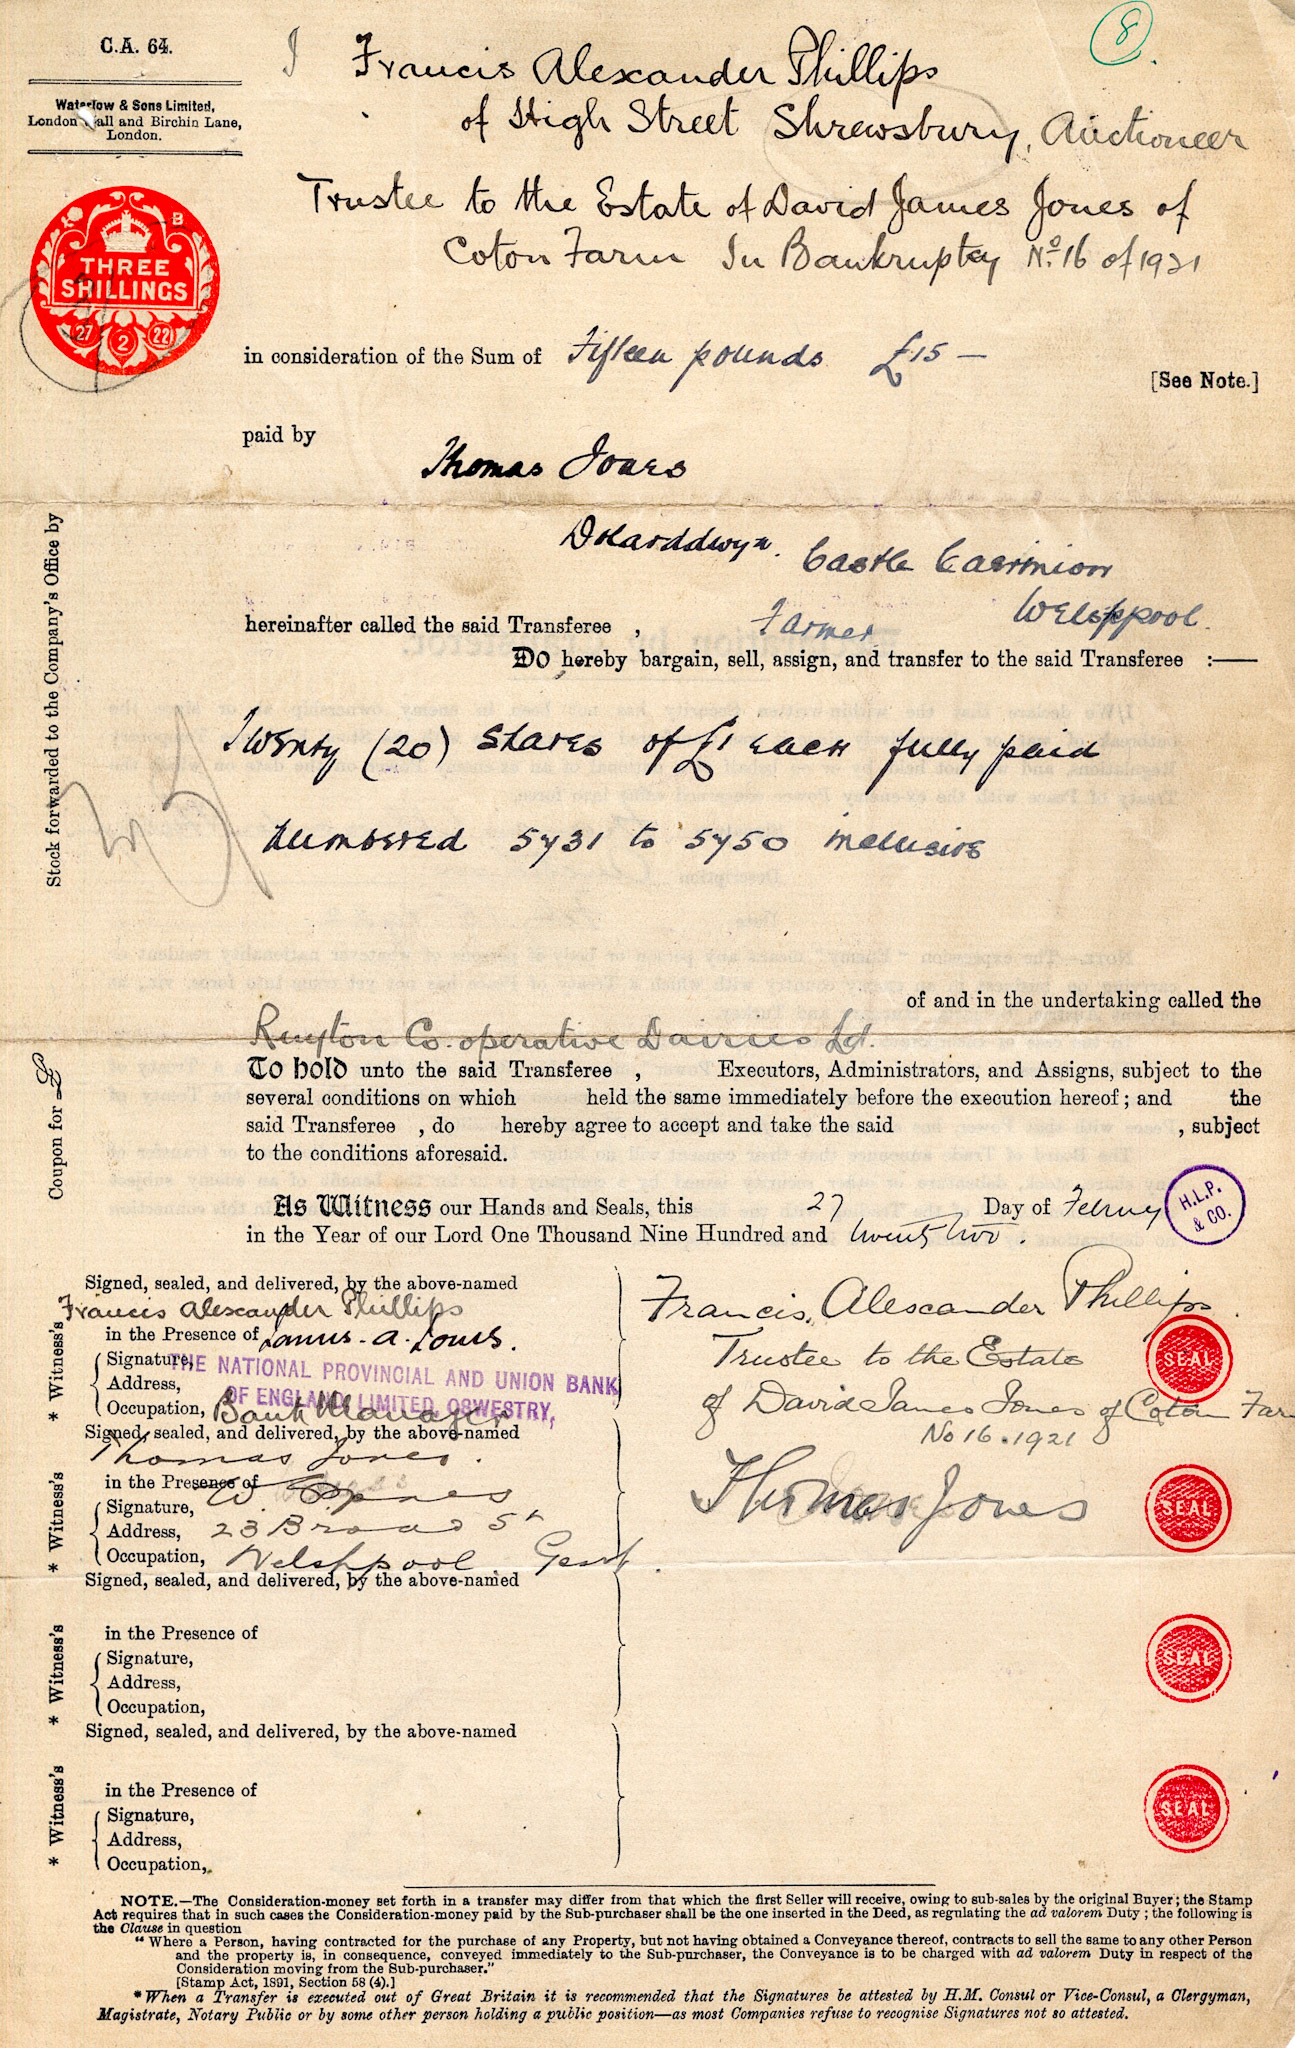 C.A. 64.
8
I Francis Alexander Phillips
Waterlow & Sons Limited,
London Wall and Birchin Lane,
London.
of High Street Shrewsbury, Auctioneer
Trustee to the Estate of David James Jones of
Coton Farm In Bankruptcy No. 16 of 1921
B
THREE
SHILLINGS
27 2 22
in consideration of the Sum of Fifteen pounds £15 —
[See Note.]
paid by
Thomas Jones
Dolarddwyn. Castle Caerinion
Welshpool.
hereinafter called the said Transferee , Farmer
Do hereby bargain, sell, assign, and transfer to the said Transferee :—
Twenty (20) Shares of £1 each fully paid
numbered 5731 to 5750 inclusive
Stock forwarded to the Company's Office by
of and in the undertaking called the
Ruyton Co. operative Dairies Ld.
To hold unto the said Transferee , Executors, Administrators, and Assigns, subject to the
several conditions on which held the same immediately before the execution hereof; and the
said Transferee , do hereby agree to accept and take the said , subject
to the conditions aforesaid.
Coupon for £
As Witness our Hands and Seals, this 27 Day of Februy
in the Year of our Lord One Thousand Nine Hundred and twenty two.
H.L.P.
& CO.
Signed, sealed, and delivered, by the above-named
Francis Alexander Phillips
in the Presence of A. Jones.
* Witness's
Signature,
Address,
Occupation, Bank Manager
THE NATIONAL PROVINCIAL AND UNION BANK
OF ENGLAND LIMITED, OSWESTRY,
Francis Alexander Phillips
Trustee to the Estate
of David James Jones of Coton Far
No 16. 1921
SEAL
Signed, sealed, and delivered, by the above-named
Thomas Jones.
in the Presence of
* Witness's
Signature, W.
Address, 23 Broad St
Occupation, Welshpool. Gent.
Thomas Jones
SEAL
Signed, sealed, and delivered, by the above-named
in the Presence of
* Witness's
Signature,
Address,
Occupation,
SEAL
Signed, sealed, and delivered, by the above-named
in the Presence of
* Witness's
Signature,
Address,
Occupation,
SEAL
NOTE.—The Consideration-money set forth in a transfer may differ from that which the first Seller will receive, owing to sub-sales by the original Buyer; the Stamp
Act requires that in such cases the Consideration-money paid by the Sub-purchaser shall be the one inserted in the Deed, as regulating the ad valorem Duty; the following is
the Clause in question
"Where a Person, having contracted for the purchase of any Property, but not having obtained a Conveyance thereof, contracts to sell the same to any other Person
and the property is, in consequence, conveyed immediately to the Sub-purchaser, the Conveyance is to be charged with ad valorem Duty in respect of the
Consideration moving from the Sub-purchaser."
[Stamp Act, 1891, Section 58 (4).]
*When a Transfer is executed out of Great Britain it is recommended that the Signatures be attested by H.M. Consul or Vice-Consul, a Clergyman,
Magistrate, Notary Public or by some other person holding a public position—as most Companies refuse to recognise Signatures not so attested.